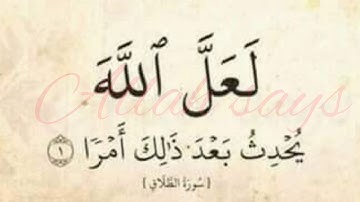 لَعَلَّ ٱللَّهَ
Allah says
يُحْدِثُ بَعْدَ ذَٰلِكَ أَمْرًا ۝١
[سُورَةُ الطَّلَاقِ]